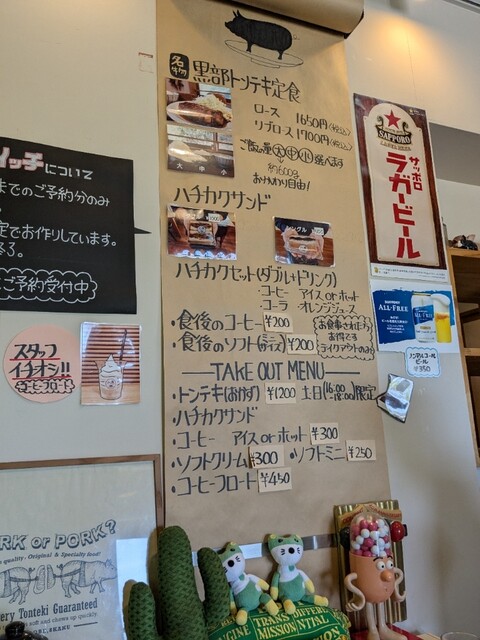 名物 黒部トンテキ定食
ロース 1650円(税込)
リブロース 1700円(税込)
ご飯の量 大 中 小 選べます
約600g
おかわり自由!
大 中 小
ハチカクサンド
シングル
ハチカクセット(ダブル+ドリンク)
・コーヒー アイス or ホット
・コーラ オレンジジュース
・食後のコーヒー ¥200
・食後のソフト(ミニサイズ) ¥200
お食事された方
お得です
テイクアウトのみ
TAKE OUT MENU
・トンテキ(おかず) ¥1200 土日(16:00~18:00)限定
・ハチカクサンド
・コーヒー アイス or ホット ¥300
・ソフトクリーム ¥300 ・ソフトミニ ¥250
・コーヒーフロート ¥450
イッチについて
までのご予約分のみ
定でお作りしています。
ご予約受付中
スタッフ
イチオシ!!
コーヒーフロート
SAPPORO
サッポロ
ラガービール
ALL-FREE
ALL-FREE
ノンアルコール
ビール
¥350
RK or PORK?
quality・Original & Specialty food!
ery Tonteki Guaranteed
TRANS
MISSION